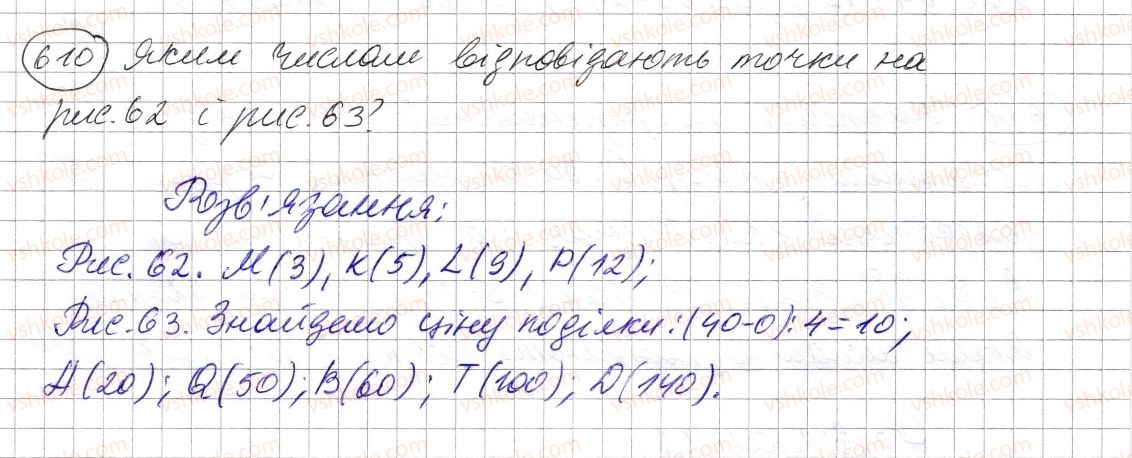 610 Яким числам відповідають точки на
рис. 62 і рис. 63?
Розв'язання:
Рис. 62. M(3), K(5), L(9), P(12);
Рис. 63. Знайдемо ціну поділки: (40-0):4=10;
A(20); Q(50); B(60); T(100); D(140).